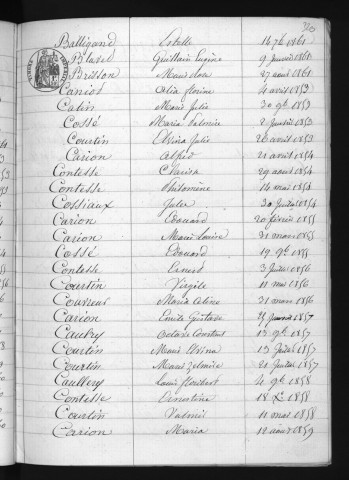 20
Balligand Estelle 14 7b 1861
Blavet Guillain Eugène 9 janvier 1861
Brisson Marie 27 août 1861
Caniot Celia florine 4 avril 1853
Catin Marie Julie 30 9b 1853
Cossé Maria Palmire 2 Juillet 1853
Courtin Elvina Julie 26 avril 1853
Carion Alfred 21 avril 1854
Contesse Clarisse 29 août 1854
Contesse Philomène 14 mai 1854
Cossiaux Jules 30 Juillet 1854
Carion Edouard 20 février 1855
Carion Marie Louise 31 mars 1855
Cossé Edouard 19 9b 1855
Contesse Ernest 3 Juillet 1856
Courtin Virgile 11 mai 1856
Couvreur Maria Céline 31 mars 1856
Carion Emile Gustave 31 Janvier 1857
Caudry Octave Constant 13 9b 1857
Courtin Marie Elvina 13 Juillet 1857
Courtin Marie Zelmire 21 Juillet 1857
Caullery Louis floribert 4 9b 1858
Contesse Ernestine 18 Xb 1858
Courtin Valmir 11 mai 1858
Carion Maria 12 août 1859